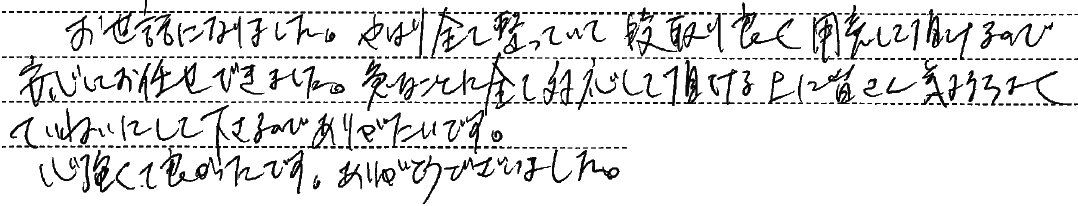 お世話になりました。やはり全て整っていて段取り良く用意して頂けるので
安心してお任せできました。急なことに全て対応して頂ける上に皆さん気持ちよくて
ていねいにして下さるのでありがたいです。
心強くて良かったです。ありがとうございました。